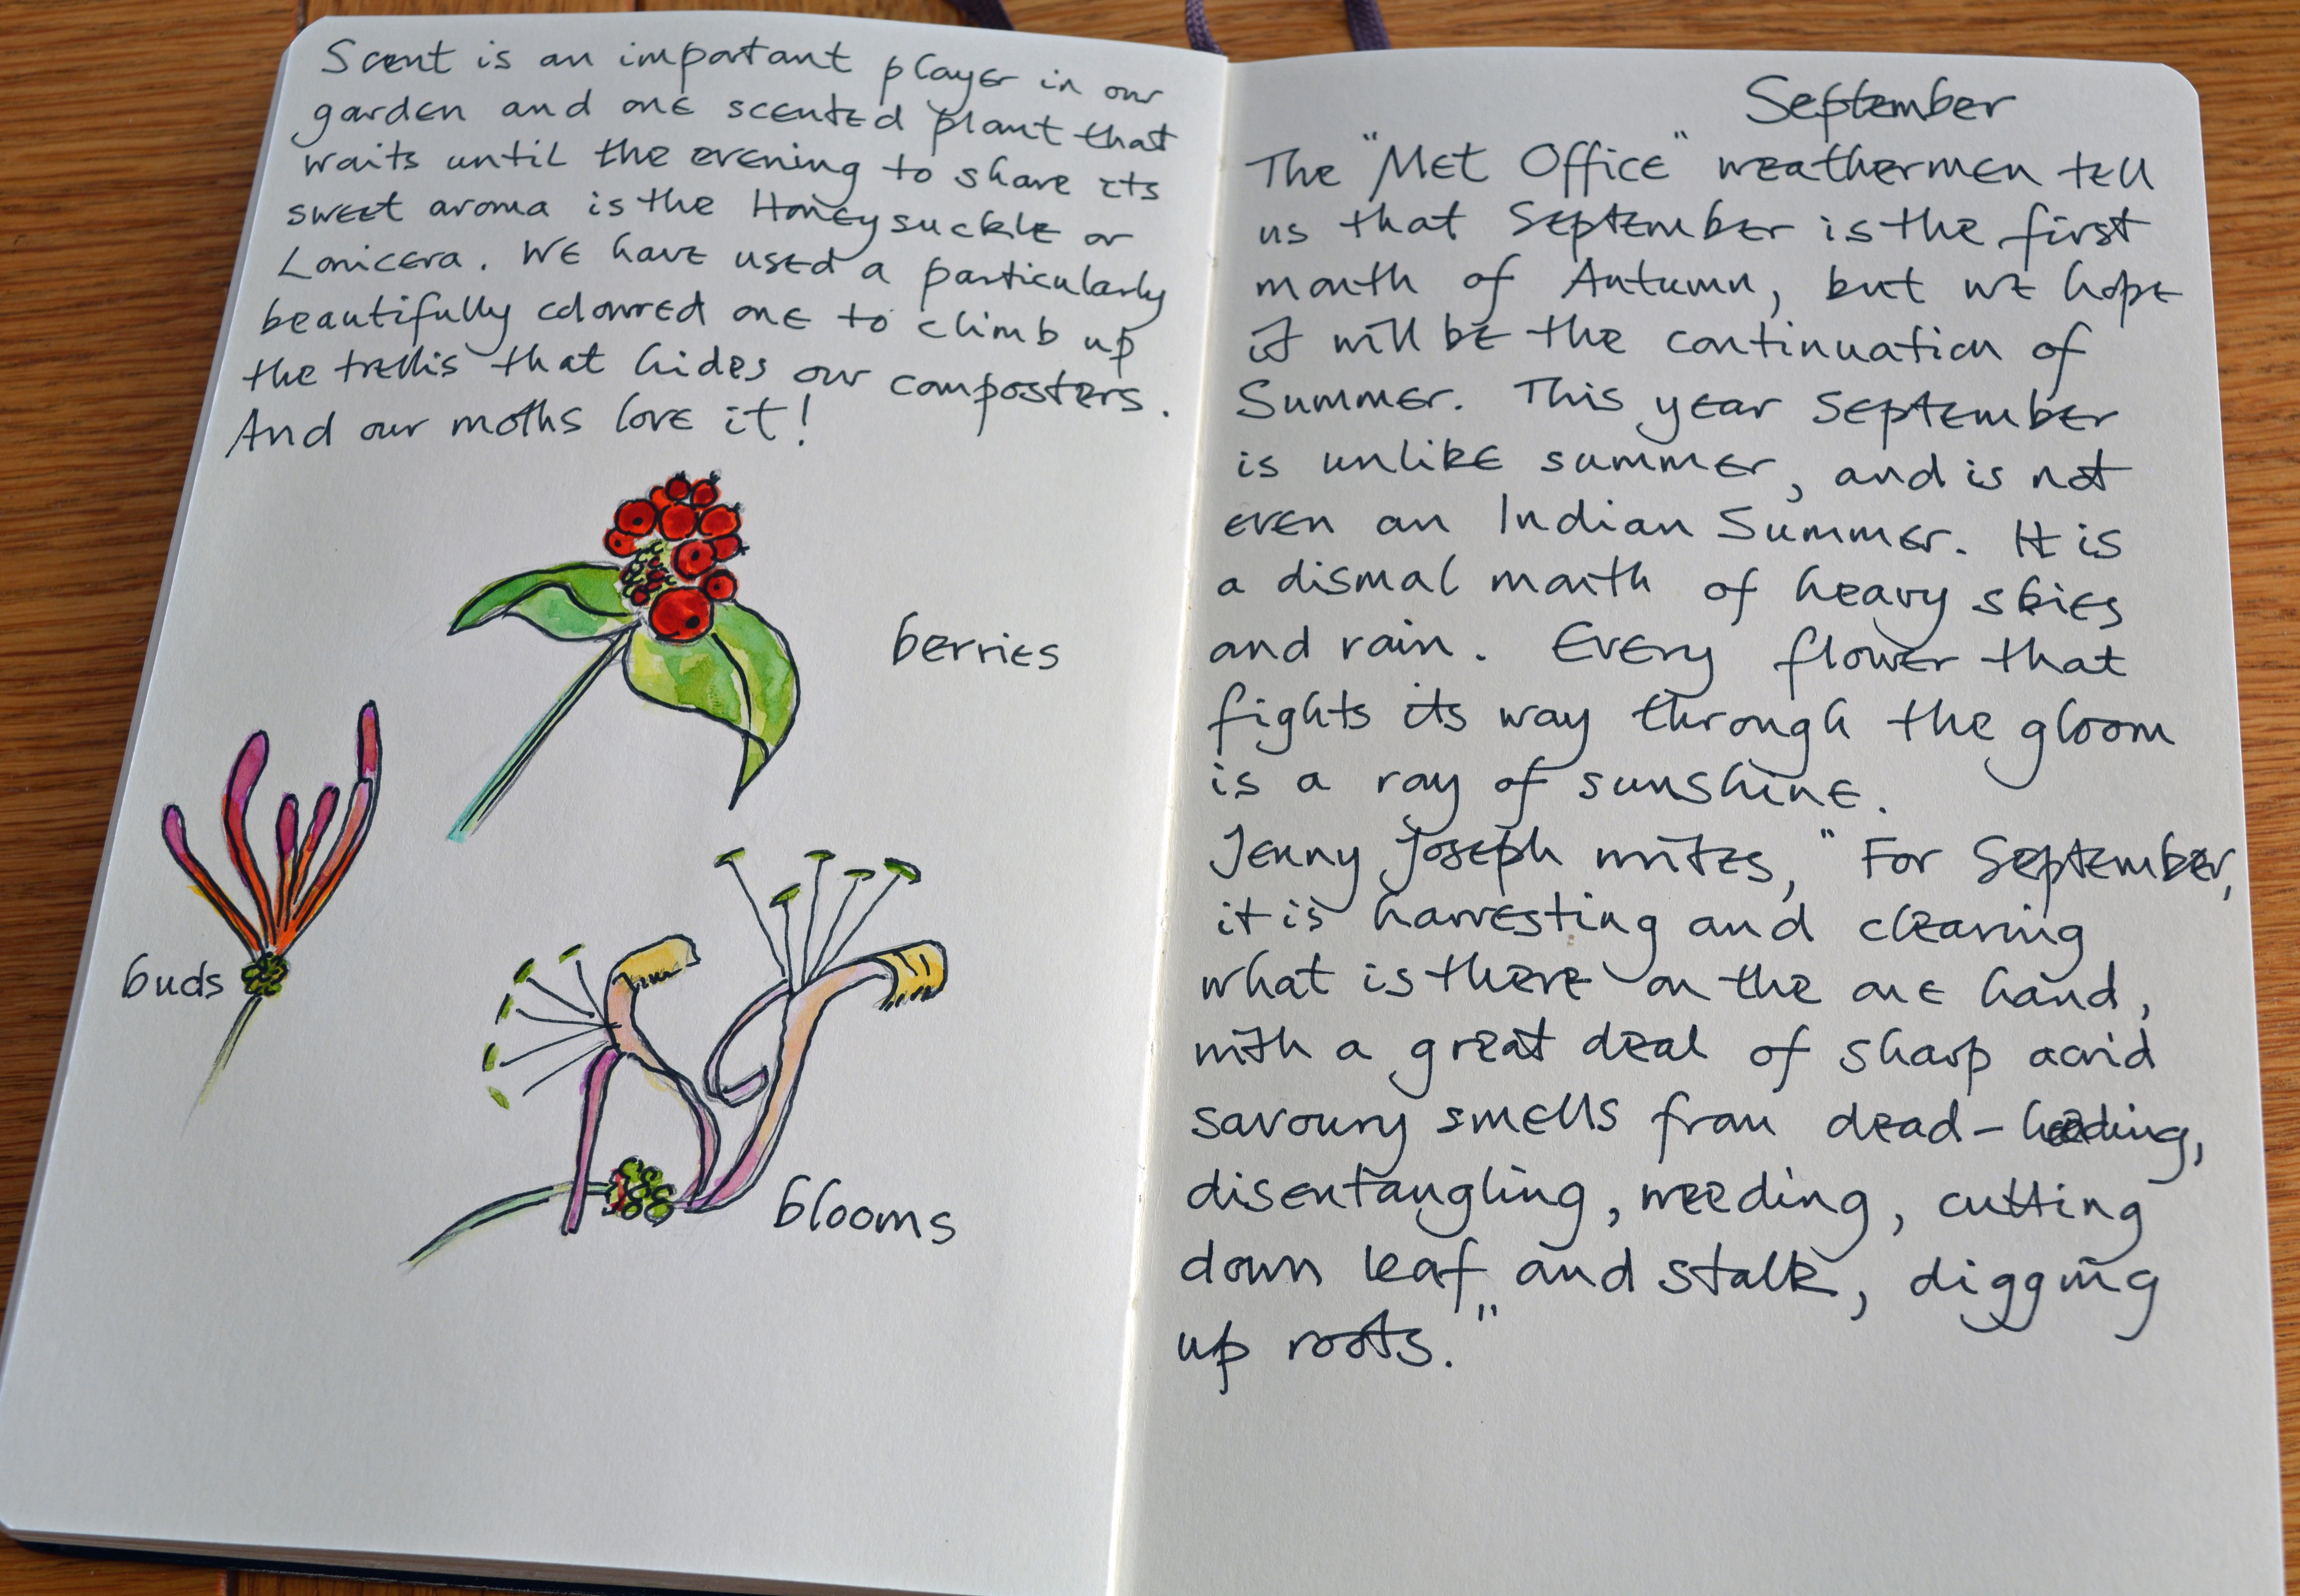 Scent is an important player in our
garden and one scented plant that
waits until the evening to share its
sweet aroma is the Honeysuckle or
Lonicera. We have used a particularly
beautifully coloured one to climb up
the trellis that hides our composters.
And our moths love it!
berries
buds
blooms
September
The "Met Office" weathermen tell
us that September is the first
month of Autumn, but we hope
it will be the continuation of
Summer. This year September
is unlike summer, and is not
even an Indian Summer. It is
a dismal month of heavy skies
and rain. Every flower that
fights its way through the gloom
is a ray of sunshine.
Jenny Joseph writes, "For September,
it is harvesting and clearing
what is there on the one hand,
with a great deal of sharp acrid
savoury smells from dead-heading,
disentangling, weeding, cutting
down leaf and stalk, digging
up roots."